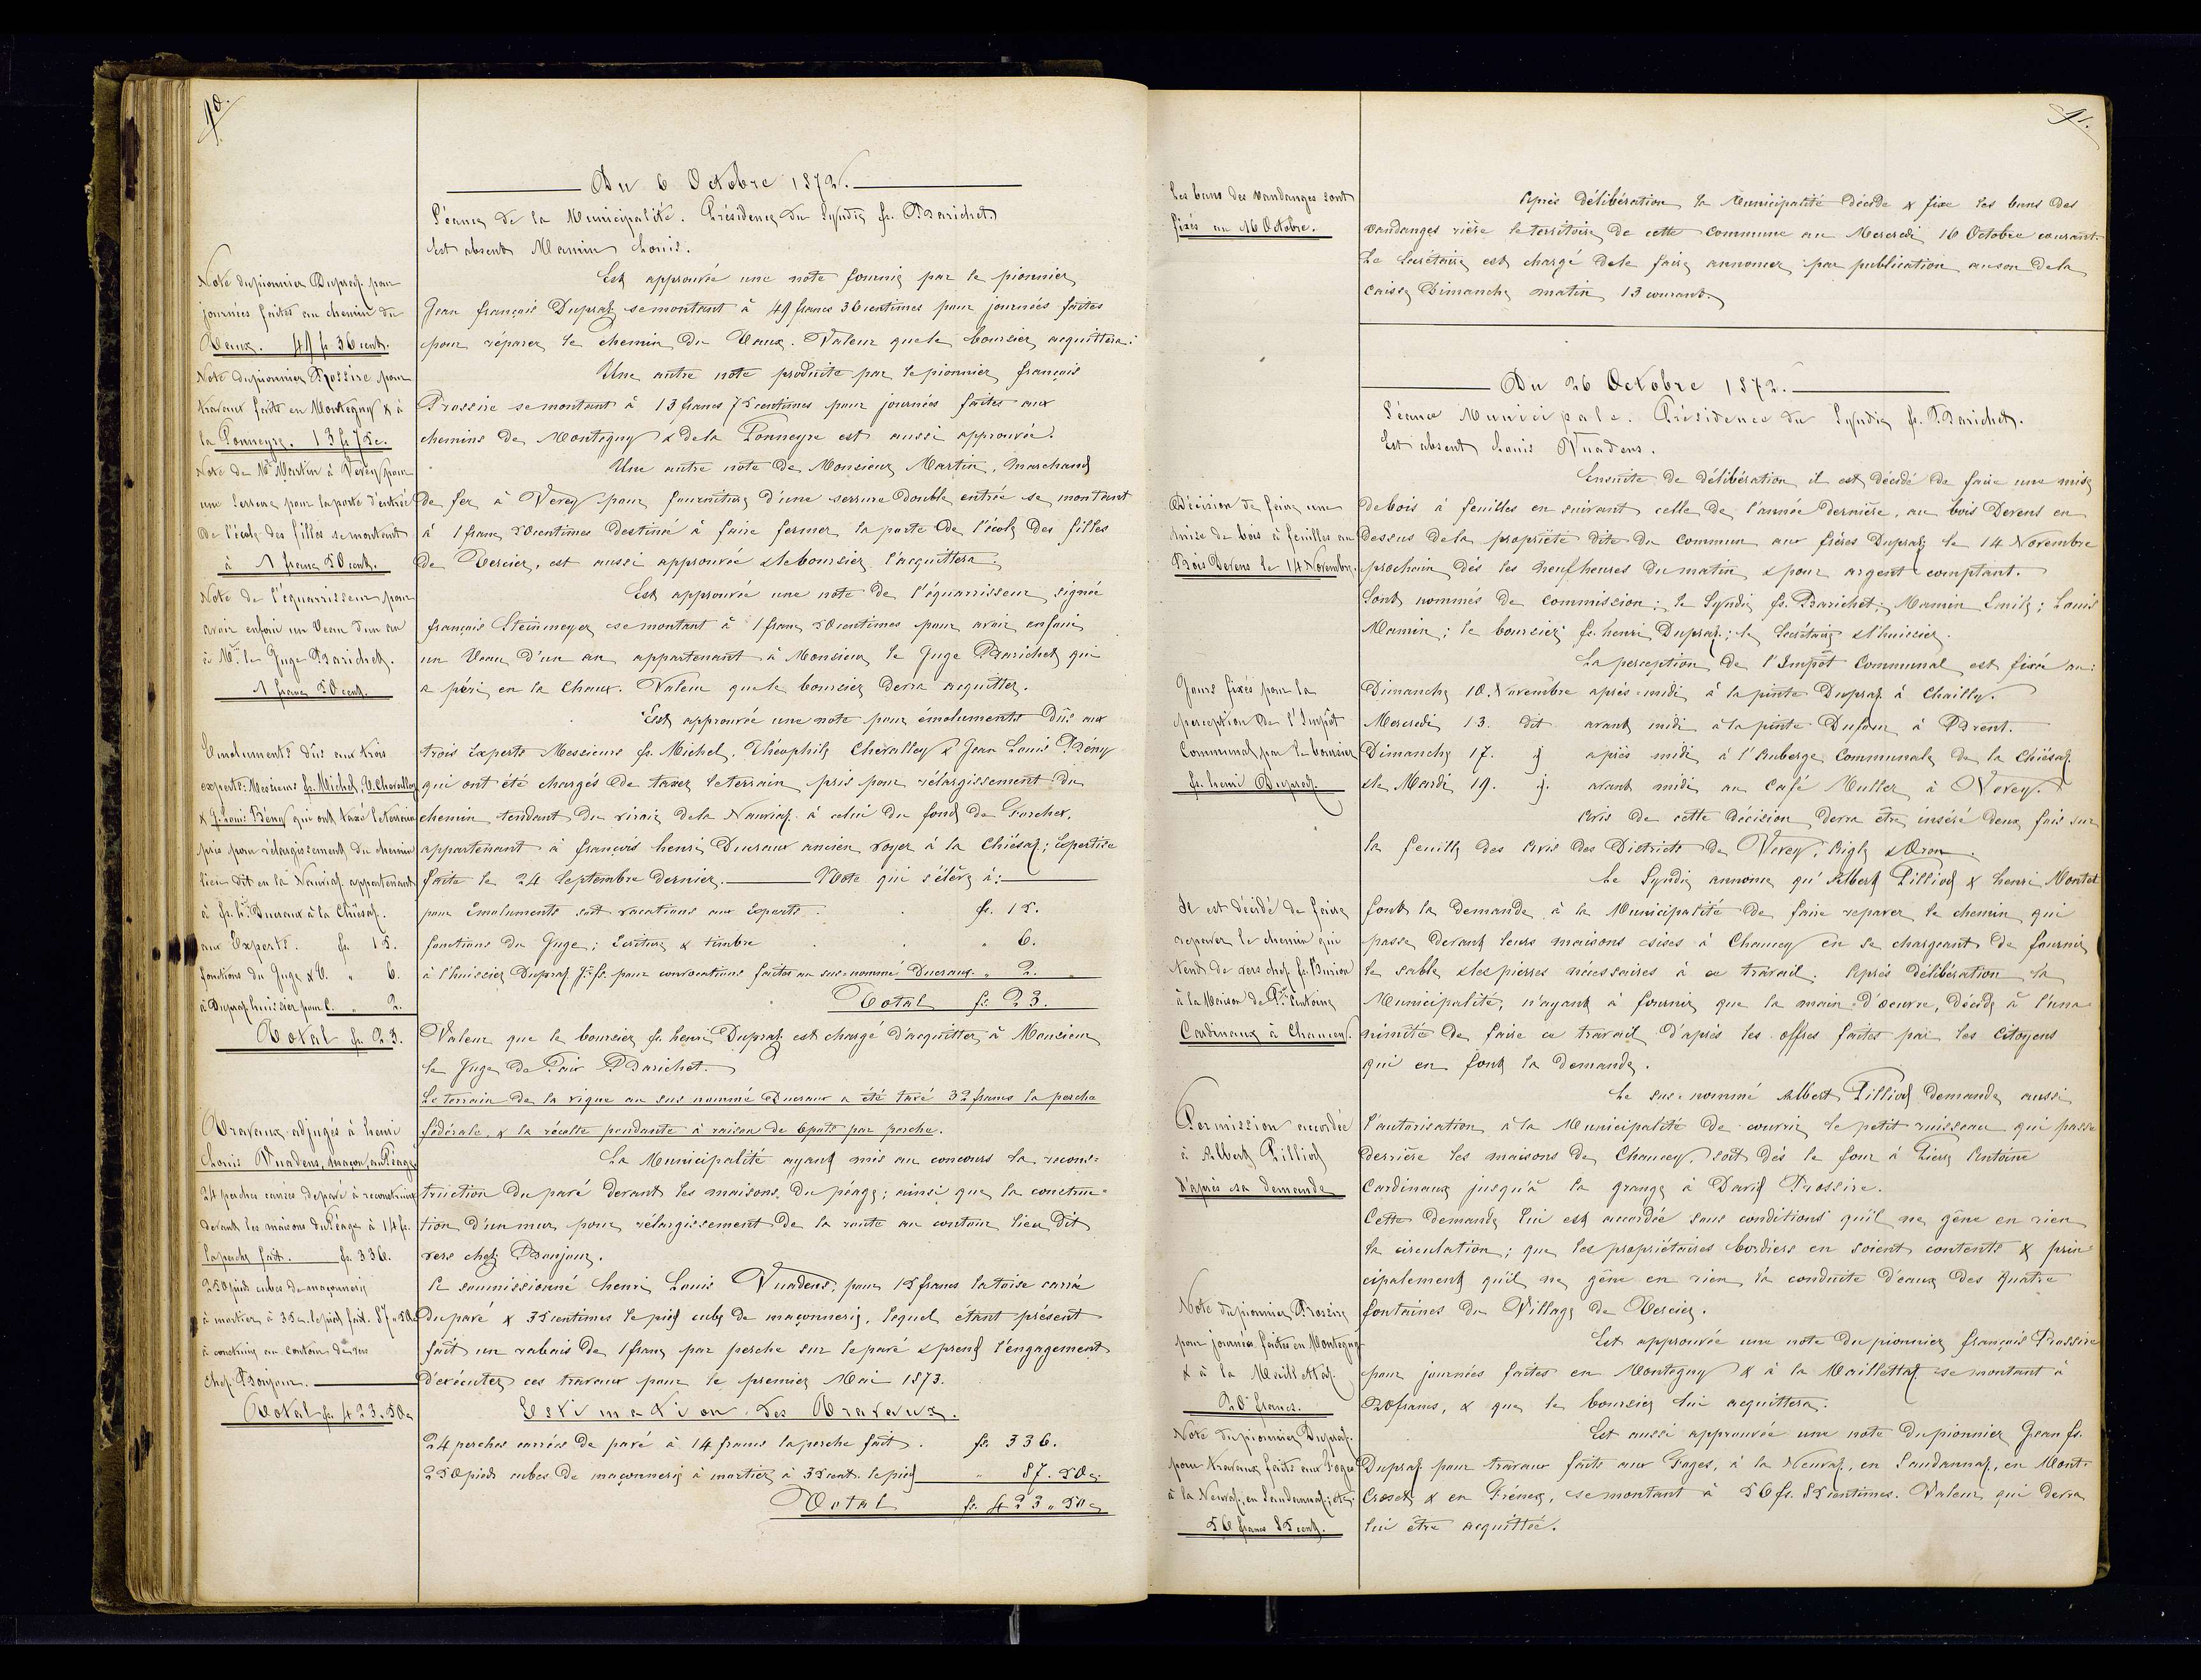 40.
Du 6 Octobre 1872.
Séance de la Municipalité. Présidence du Syndic fs. Barichet.
Est absent Mamin Louis.
Note du pionnier Dupraz pour
journées faites au chemin du
Vaux. 49 fr. 36 cent.
Est approuvée une note fournie par le pionnier
Jean françois Dupraz se montant à 49 francs 36 centimes pour journées faites
pour réparer le chemin du Vaux. Valeur que le boursier acquittera.
Note du pionnier Rossire pour
travaux faits en Montegny & à
la Ponneyre. 13 fr 75 c.
Une autre note produite par le pionnier françois
Prossire se montant à 13 francs 75 centimes pour journées faites aux
chemins de Montegny & de la Ponneyre est aussi approuvée.
Note de Mr. Martin à Vevey pour
une serrure pour la porte d'entrée
de l'école des filles se montant
à 1 franc 50 cent.
Une autre note de Monsieur Martin, marchand
de fer à Vevey pour fourniture d'une serrure double entrée se montant
à 1 franc 50 centimes destiné à faire fermer la porte de l'école des filles
de Tercier, est aussi approuvée & le boursier l'acquittera.
Note de l'équarrisseur pour
avoir enfoui un Veau d'un an
à Mr. le Juge Barichet.
1 franc 50 cent.
Est approuvée une note de l'équarrisseur signée
françois Steinmeyer se montant à 1 franc 50 centimes pour avoir enfoui
un Veau d'un an appartenant à Monsieur le Juge Barichet qui
a péri en la Chaux. Valeur que le boursier devra acquitter.
Emoluments dûs aux trois
experts: Messieurs fs. Michel, T. Chevalley
& J. Louis Bény qui ont taxé le terrain
pris pour rélargissement du chemin
lieu dit en la Nauriaz appartenant
à fs. hri. Ducraux à la Chiésaz.
aux Experts. fr. 15.
fonctions du Juge & T. " 6.
à Dupraz huissier pour C. " 2.
Total fr. 23.
Est approuvée une note pour émoluments dûs aux
trois Experts Messieurs fs. Michel, Théophile Chevalley & Jean Louis Bény
qui ont été chargés de taxer le terrain pris pour rélargissement du
chemin tendant du de la Nauriaz à celui du fond de Forchex,
appartenant à françois henri Ducraux ancien voyer à la Chiésaz; Expertise
faite le 24 Septembre dernier. Note qui s'élève à:
pour Emoluments soit vacations aux Experts . . fr. 15.
fonctions du Juge; Ecriture & timbre . . " 6.
à l'huissier Dupraz Jn. fs. pour convocations faites au sus-nommé Ducraux. " 2.
Total fr. 23.
Valeur que le boursier fs. henri Dupraz est chargé d'acquitter à Monsieur
le Juge de Paix Barichet.
Le terrain de la vigne au sus nommé Ducraux a été taxé 32 francs la perche
fédérale, & la récolte pendante à raison de 6 pots par perche.
Travaux adjugés à henri
Louis Vuadens, maçon, au Péage
24 perches carrées de pavé à reconstruire
devant les maisons du Péage à 14 fr.
la perche fait. fr. 336.
250 pieds cubes de maçonnerie
à mortier à 35 c. le pied fait. 87.50 c
à construire au contour de vers
chez Bonjour.
Total fr. 423.50 c
La Municipalité ayant mis au concours la recons-
truction du pavé devant les maisons du péage; ainsi que la construc-
tion d'un mur pour rélargissement de la route au contour lieu dit
vers chez Bonjour.
A soumissionné henri Louis Vuadens, pour 15 francs la toise carrée
du pavé & 35 centimes le pied cube de maçonnerie, lequel étant présent
fait un rabais de 1 franc par perche sur le pavé & prend l'engagement
d'exécuter ces travaux pour le premier Mai 1873.
Estimation des Travaux.
24 perches carrées de pavé à 14 francs la perche fait . fr. 336.
250 pieds cubes de maçonnerie à mortier à 35 cent. le pied " 87.50 c.
Total fr. 423.50 c
41.
Les bans des vandanges sont
fixés au 16 Octobre.
Après délibération la Municipalité décide & fixe les bans des
vandanges rière le territoire de cette Commune au Mercredi 16 Octobre courant.
Le Secrétaire est chargé de le faire annoncer par publication au son de la
Caisse Dimanche matin 13 courant.
Du 26 Octobre 1872.
Séance Municipale. Présidence du Syndic fs. Barichet.
Est absent Louis Vuadens.
Décision de faire une
mise de bois à feuilles au
Bois Devens le 14 Novembre.
Ensuite de délibération il est décidé de faire une mise
de bois à feuilles en suivant celle de l'année dernière, au bois Devens en
dessus de la propriété dite du Commun aux frères Dupraz le 14 Novembre
prochain dès les neuf heures du matin & pour argent comptant.
Sont nommés de commission: le Syndic fs. Barichet; Mamin Emile; Louis
Mamin; le boursier fs. henri Dupraz; le Secrétaire & l'huissier.
Jours fixés pour la
perception de l'Impôt
Communal par le boursier
fs. henri Dupraz.
La perception de l'Impôt Communal est fixée au:
Dimanche 10. Novembre après-midi à la pinte Dupraz à Chailly.
Mercredi 13. dit avant midi à la pinte Dufour à Brent.
Dimanche 17. " après midi à l'Auberge Communale de la Chiésaz.
& le Mardi 19. " avant midi au Café Muller à Vevey.
Avis de cette décision devra être inséré deux fois sur
la feuille des Avis des Districts de Vevey, Aigle & Oron.
Il est décidé de faire
repaver le chemin qui
tend de vers chez fs. Burion
à la Maison de Pre. Antoine
Cardinaux à Chaucey.
Le Syndic annonce qu'Albert Pilliod & henri Montet
font la demande à la Municipalité de faire repaver le chemin qui
passe devant leurs maisons sises à Chaucey en se chargeant de fournir
le sable & les pierres nécessaires à ce travail. Après délibération la
Municipalité, n'ayant à fournir que la main d'oeuvre, décide à l'una-
nimité de faire ce travail d'après les offres faites par les Citoyens
qui en font la demande.
Permission accordée
à Albert Pilliod
d'après sa demande
Le sus-nommé Albert Pilliod demande aussi
l'autorisation à la Municipalité de couvrir le petit ruisseau qui passe
derrière les maisons de Chaucey, soit dès le four à Pierre Antoine
Cardinaux jusqu'à la grange à David Prossire.
Cette demande lui est accordée sous conditions qu'il ne gêne en rien
la circulation; que les propriétaires bordiers en soient contents & prin
cipalement qu'il ne gêne en rien la conduite d'eaux des quatre
fontaines du Village de Tercier.
Note du pionnier Prossire
pour journées faites en Montegny
& à la Maillettaz.
20 francs.
Est approuvée une note du pionnier françois Prossire
pour journées faites en Montegny & à la Maillettaz se montant à
20 francs, & que le boursier lui acquittera.
Note du pionnier Dupraz.
pour travaux faits aux Foges
à la Neuvaz, en Saudannaz; etc.
56 francs 85 cent.
Est aussi approuvée une note du pionnier Jean fs.
Dupraz pour travaux faits aux Foges, à la Neuvaz, en Saudannaz, en Mont-
Crosets & en Frénex, se montant à 56 fr. 85 centimes. Valeur qui devra
lui être acquittée.